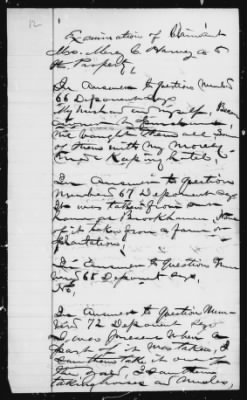 12
Examination of Claimant
Mrs. Mary C Harvey as to
the Property,
In Answer to Question Number
66 Deponent Says
My husband &
We bought them all some
of them with my money
Keeping hotel,
In Answer to question
Number 67 Deponent Says
It was taken from our
Brookhaven, None
of it taken from a farm or
plantation.
In Answer to Question Num
ber 68 Deponent Says,
No,
In Answer to Question Num
ber 72 Deponent Says
I was present when a
part of it was taken, I
saw them take it out of
the yard, I saw them
taking horses and mules,